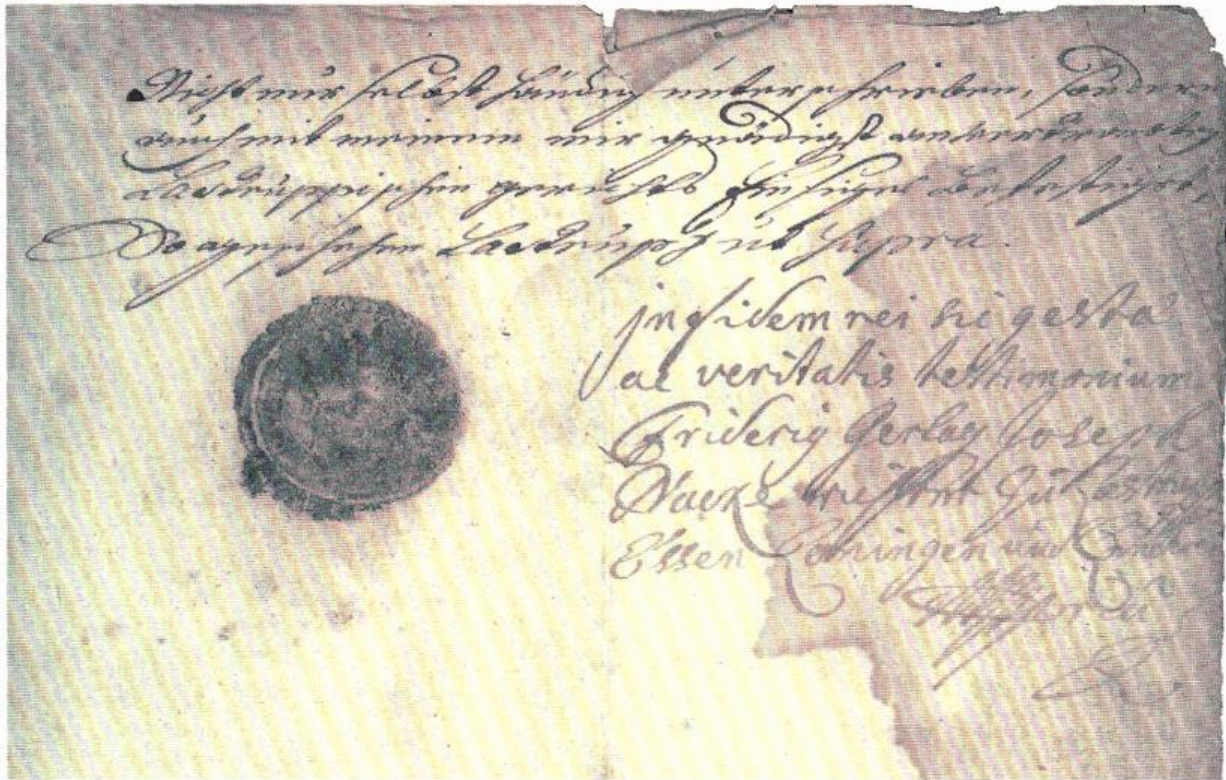 Nicht nur selbst händig unterschrieben, sondern
auch mit meinem mir gnädigst anvertrauten
Lastruppischen gerichts Insiegel befestiget,
So geschehen Lastrup ut supra.
in fidem rei sic gesta
ac veritatis testimonium
Friderig Gerlag Joseph
Nacke
Essen Löningen und